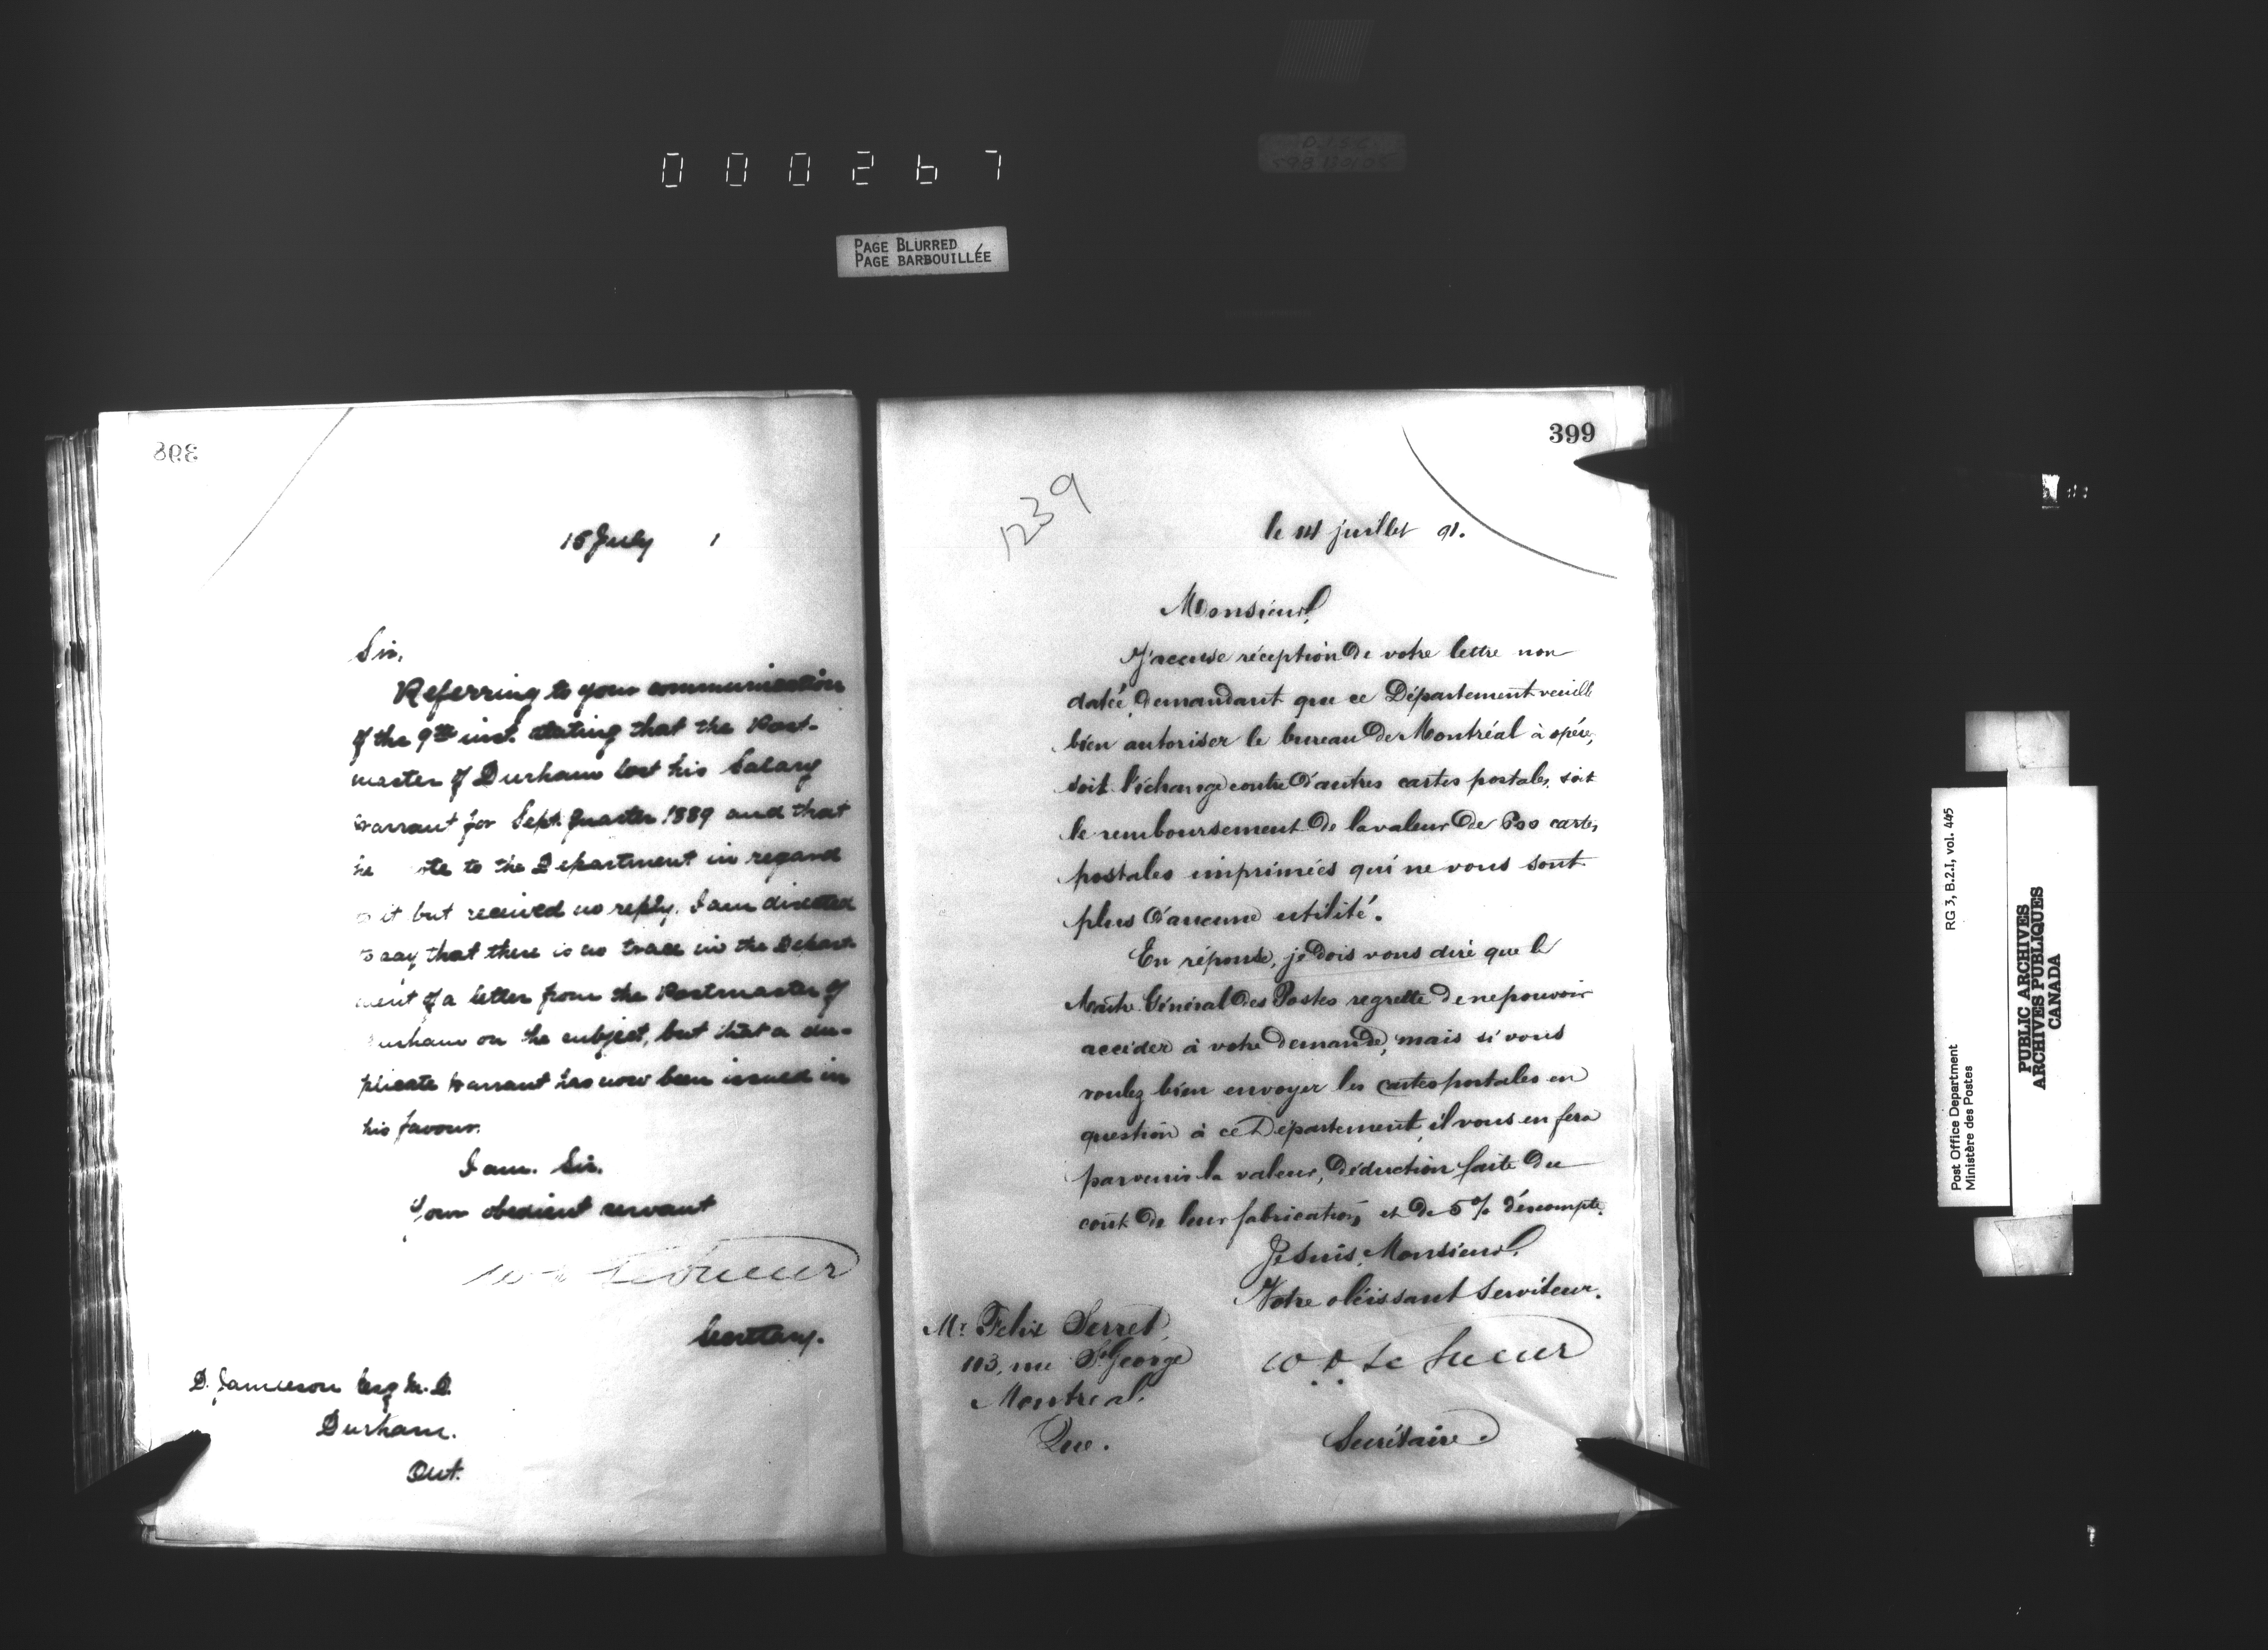 000267
PAGE BLURRED
PAGE BARBOUILLÉE
398
15 July 1
Sir,
Referring to your communication
of the 9th inst. stating that the Post-
master of Durham lost his Salary
warrant for Sept. Quarter 1889 and that
he ote to the Department in regard
to it but received no reply. I am directed
to say that there is no trace in the Depart-
ment of a letter from the Postmaster of
urham on the subject, but that a du-
plicate warrant has now been issued in
his favour.
I am. Sir.
Your obedient servant
W D LeSueur
Secretary.
D. Jamieson Esq M.D.
Durham.
Ont.
399
1239
le 14 juillet 91.
Monsieur,
J'accuse réception de votre lettre non
datée, demandant que ce Département veuille
bien autoriser le bureau de Montréal à opérer,
soit l'échange contre d'autres cartes postales, soit
le remboursement de la valeur de 600 cartes
postales imprimées qui ne vous sont
plus d'aucune utilité.
En réponse, je dois vous dire que le
Maître Général des Postes regrette de ne pouvoir
accéder à votre demande, mais si vous
voulez bien envoyer les cartes postales en
question à ce Département, il vous en fera
parvenir la valeur, déduction faite du
coût de leur fabrication, et de 5% d'escompte.
Je suis, Monsieur,
Votre obéissant serviteur.
W D Le Sueur
Secrétaire
Mr. Felix Serret,
113, rue St George
Montreal.
Que.
Post Office Department RG 3, B.2.I, vol. 445
Ministère des Postes
PUBLIC ARCHIVES
ARCHIVES PUBLIQUES
CANADA